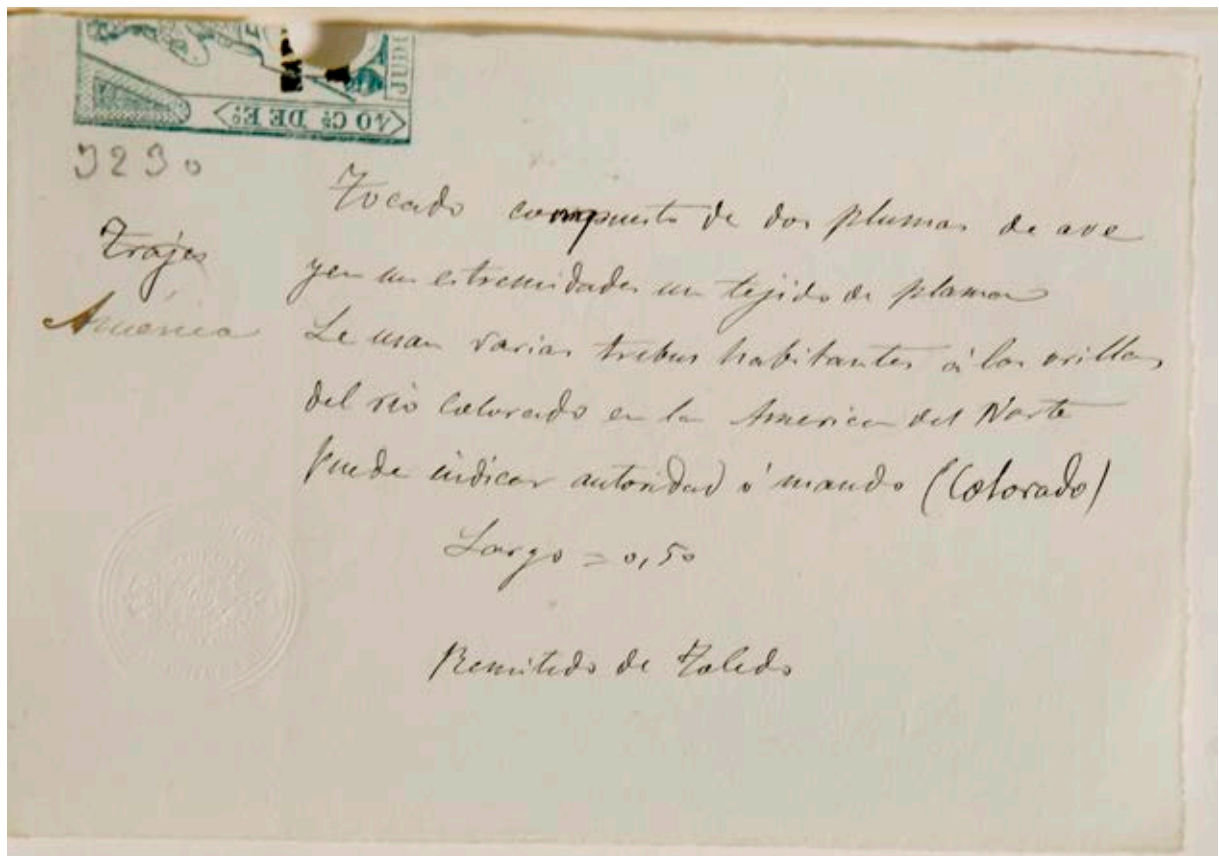 40 Cs DE Eo
JUNI
3230
Trajes
América
Tocado compuesto de dos plumas de ave
y en sus estremidades un tejido de plumas
Le usan varias tribus habitantes á las orillas
del rio Colorado en la America del Norte
puede indicar autoridad ó mando (Colorado)
Largo = 0,50
Remitido de Toledo